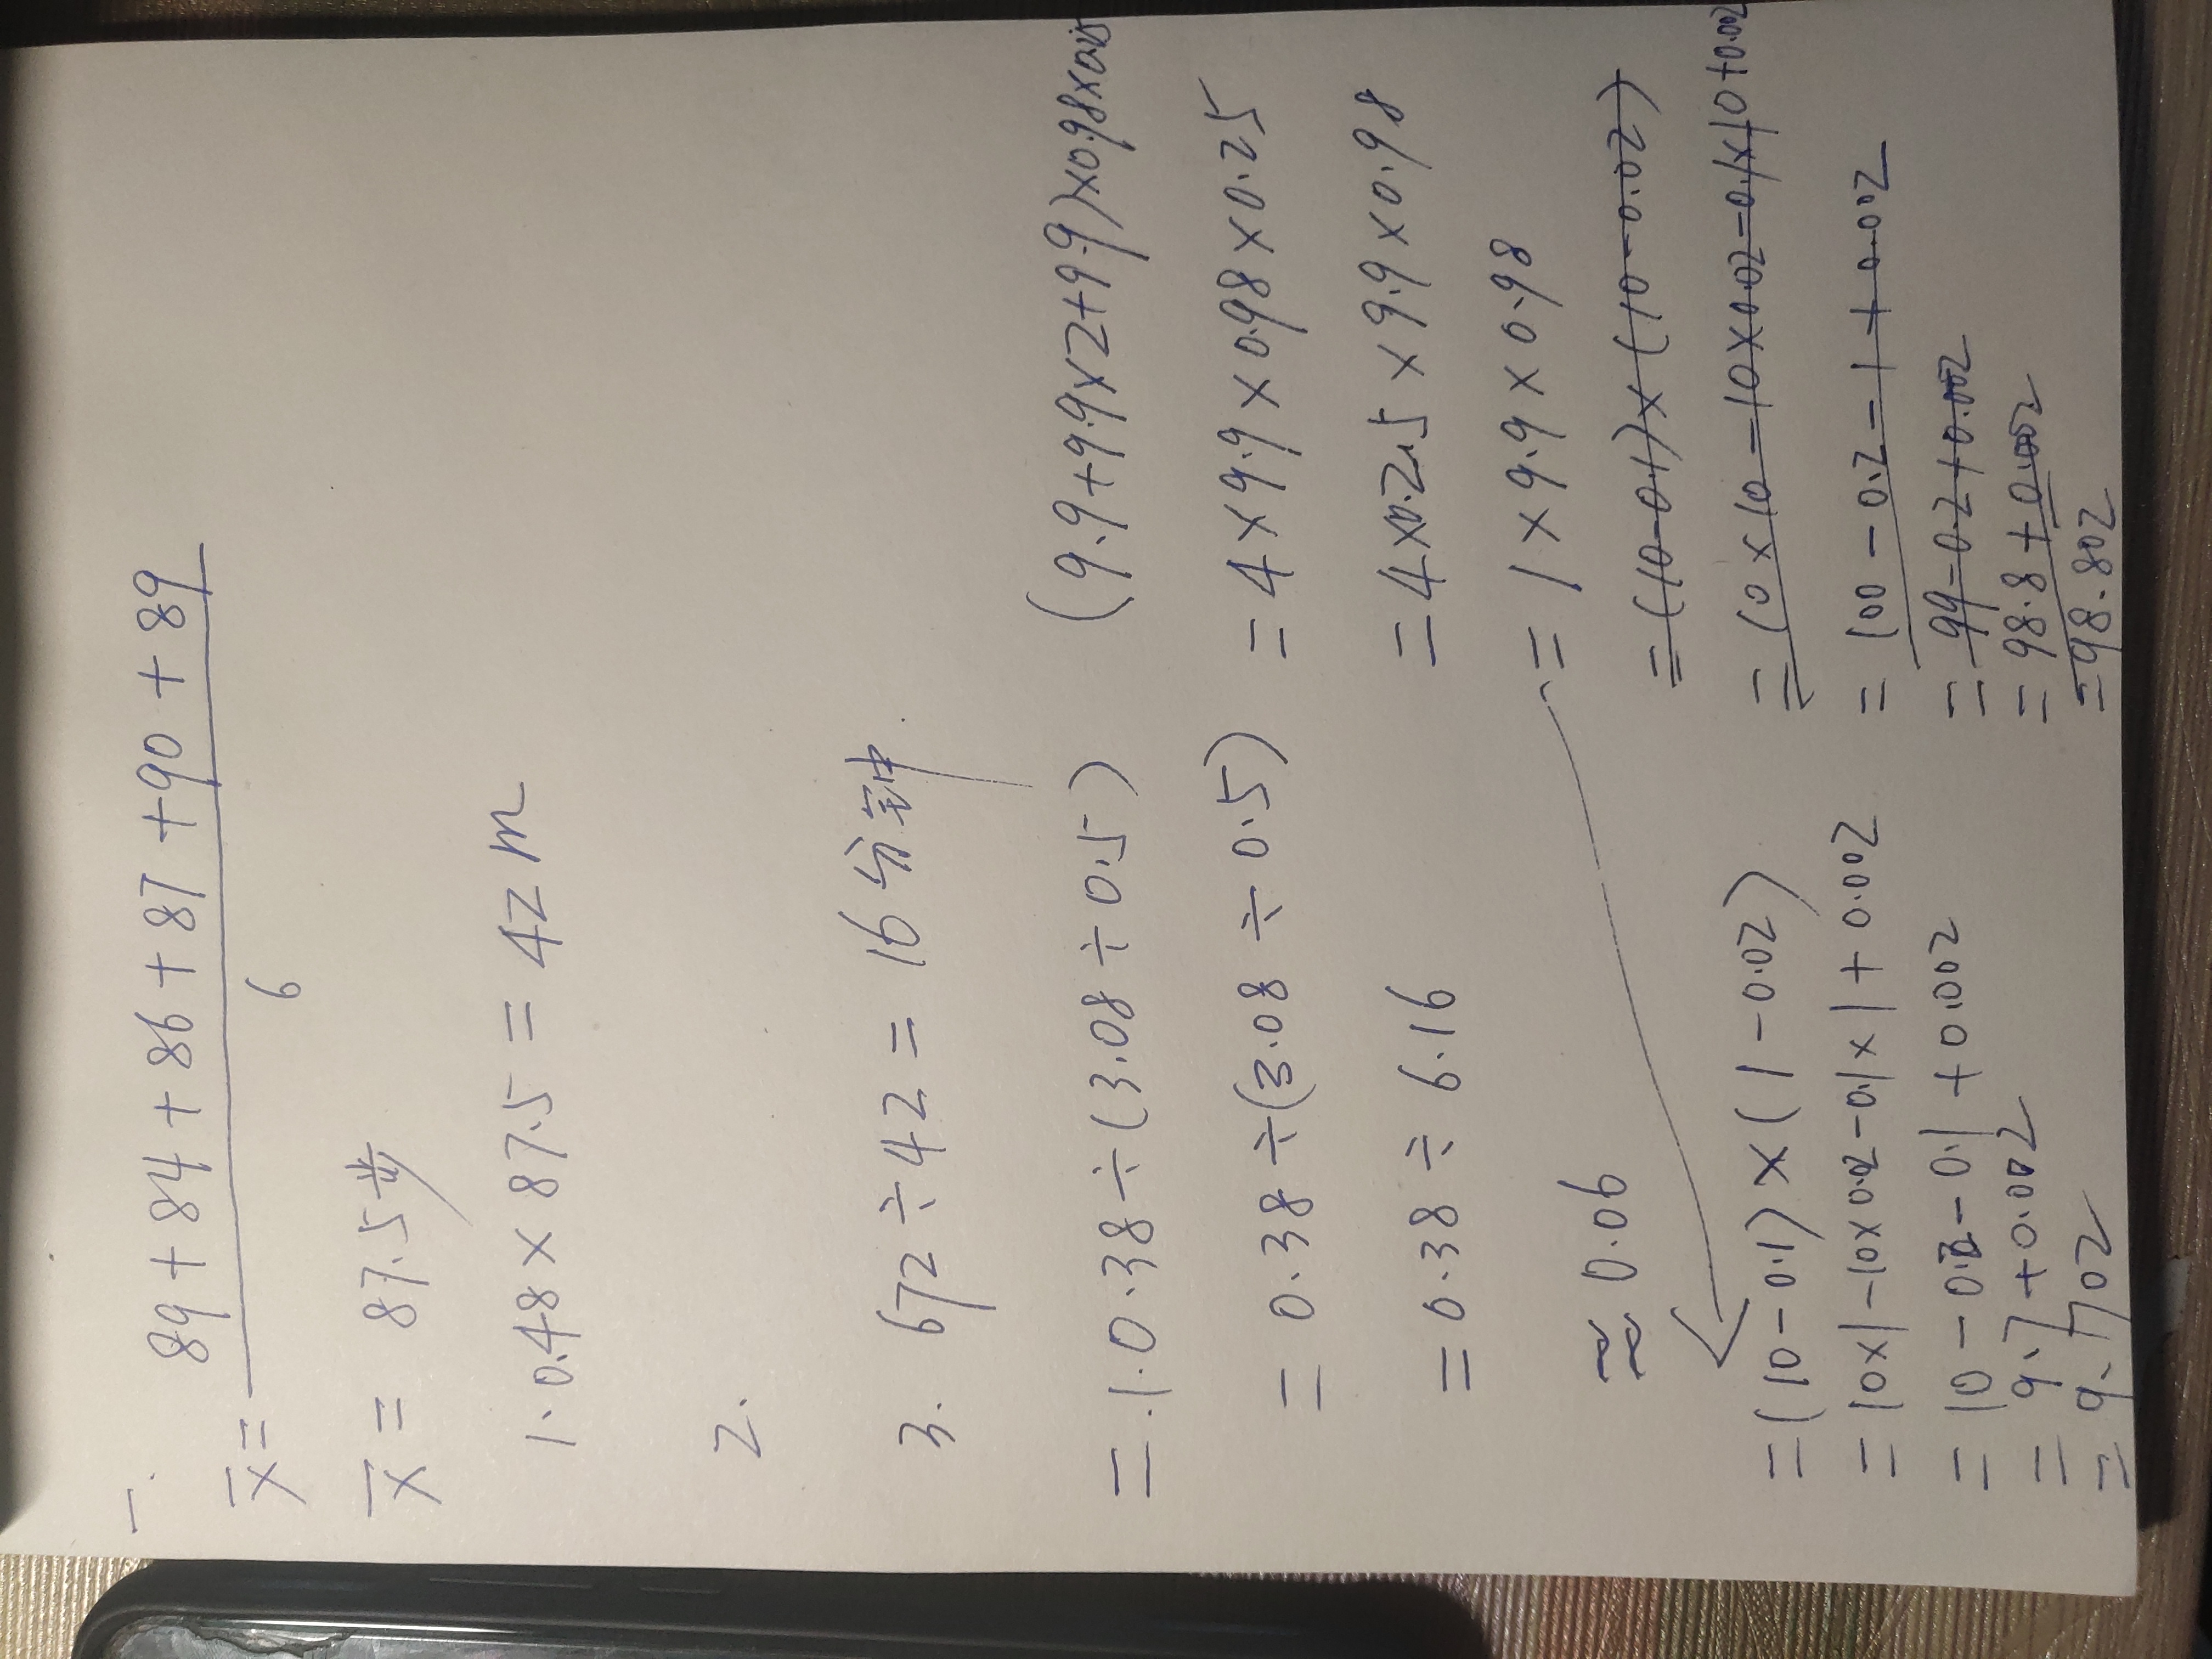 一.
x̄ = (89+84+86+87+90+89)/6
x̄ = 87.5步
1. 0.48×87.5=42m
2.
3. 672÷42=16分钟.
=.1.0.38÷(3.08÷0.5)
=0.38÷(3.08÷0.5)
=0.38÷6.16
≈0.06
(9.9+9.9×2+9.9)×0.98×0.25
=4×9.9×0.98×0.25
=4×0.25×9.9×0.98
=1×9.9×0.98
=(10-0.1)×(10-0.02)
=10×10-10×0.02-0.1×10+0.002
=100-0.2-1+0.002
=99-0.2+0.002
=98.8+0.002
=98.802
=(10-0.1)×(1-0.02)
=10×1-10×0.02-0.1×1+0.002
=10-0.2-0.1+0.002
=9.7+0.002
=9.702